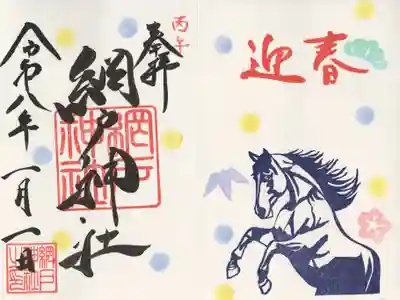 迎春
丙午
奉拝
網戸神社
網戸神社
令和八年一月一日